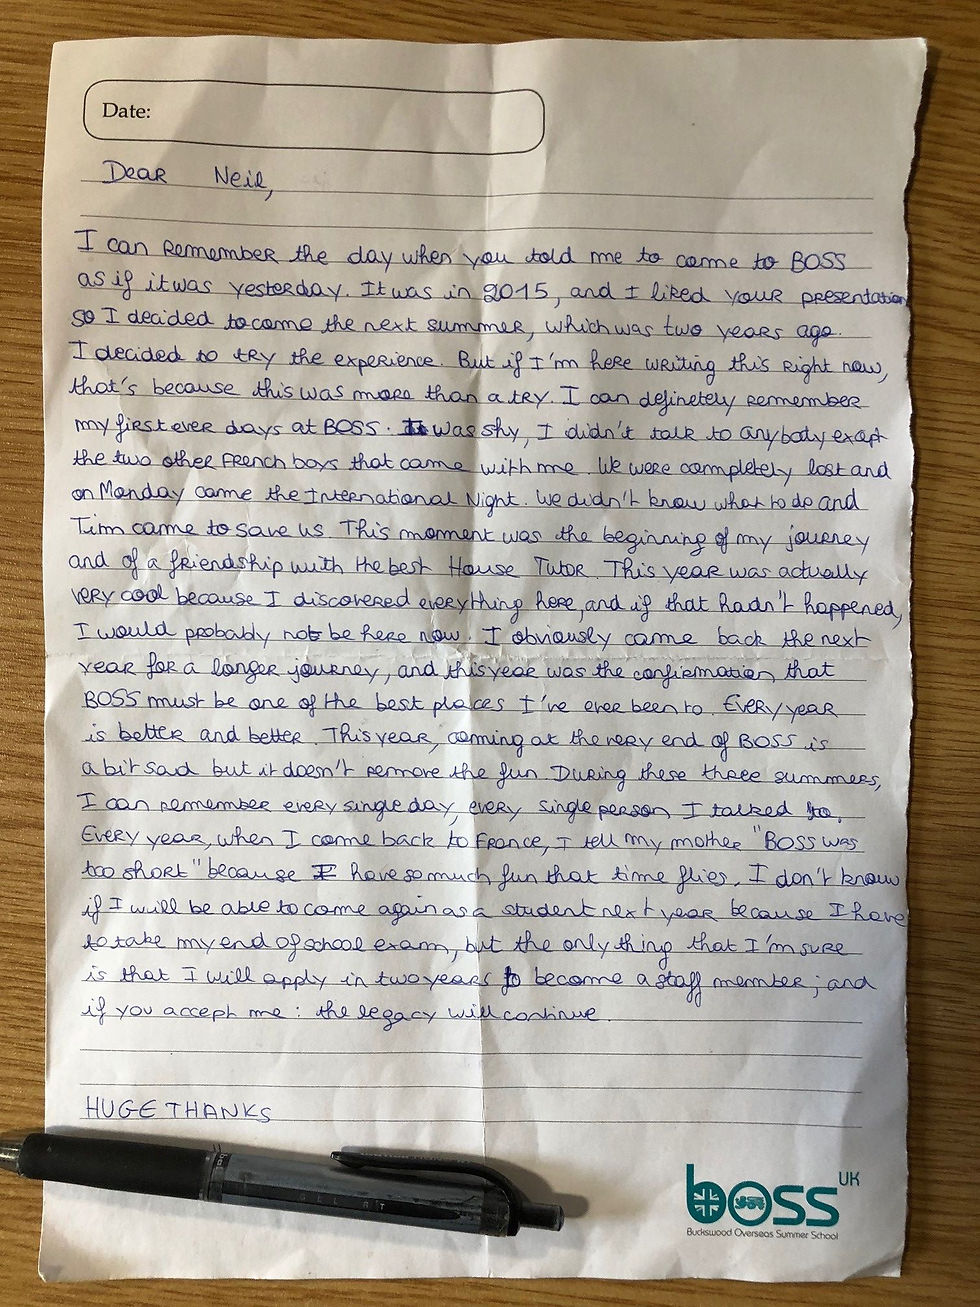 Date:
Dear Neil,
I can remember the day when you told me to come to BOSS
as if it was yesterday. It was in 2015, and I liked your presentation
so I decided to come the next summer, which was two years ago.
I decided to try the experience. But if I'm here writing this right now,
that's because this was more than a try. I can definetely remember
my first ever days at BOSS. It was shy, I didn't talk to anybody exept
the two other French boys that came with me. We were completely lost and
on Monday came the International Night. We didn't know what to do and
Tim came to save us. This moment was the beginning of my journey
and of a friendship with the best House Tutor. This year was actually
very cool because I discovered everything here, and if that hadn't happened,
I would probably not be here now. I obviously came back the next
year for a longer journey, and this year was the confirmation that
BOSS must be one of the best places I've ever been to. Every year
is better and better. This year, coming at the very end of BOSS is
a bit sad but it doesn't remove the fun. During these three summers,
I can remember every single day, every single person I talked to.
Every year, when I come back to France, I tell my mother "BOSS was
too short" because I have so much fun that time flies. I don't know
if I will be able to come again as a student next year because I have
to take my end of school exam, but the only thing that I'm sure
is that I will apply in two years to become a staff member; and
if you accept me : the legacy will continue.
HUGE THANKS
boss UK
Buckswood Overseas Summer School